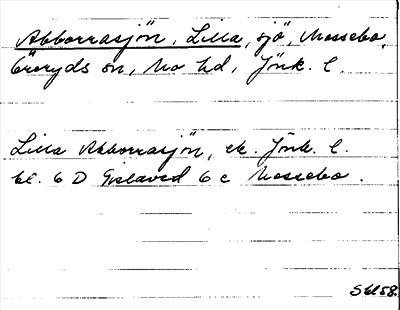 Abborrasjön, Lilla, sjö, Mossebo,
Öreryds sn, Mo hd, Jönk. l.
Lilla Abborrasjön, ek. Jönk. l.
bl. 6 D Gislaved 6 c Mossebo.
Skl 58.